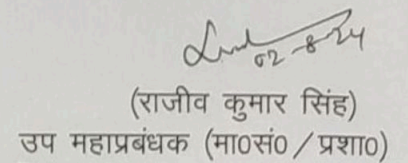 02-8-24
(राजीव कुमार सिंह)
उप महाप्रबंधक (मा०सं०/प्रशा०)